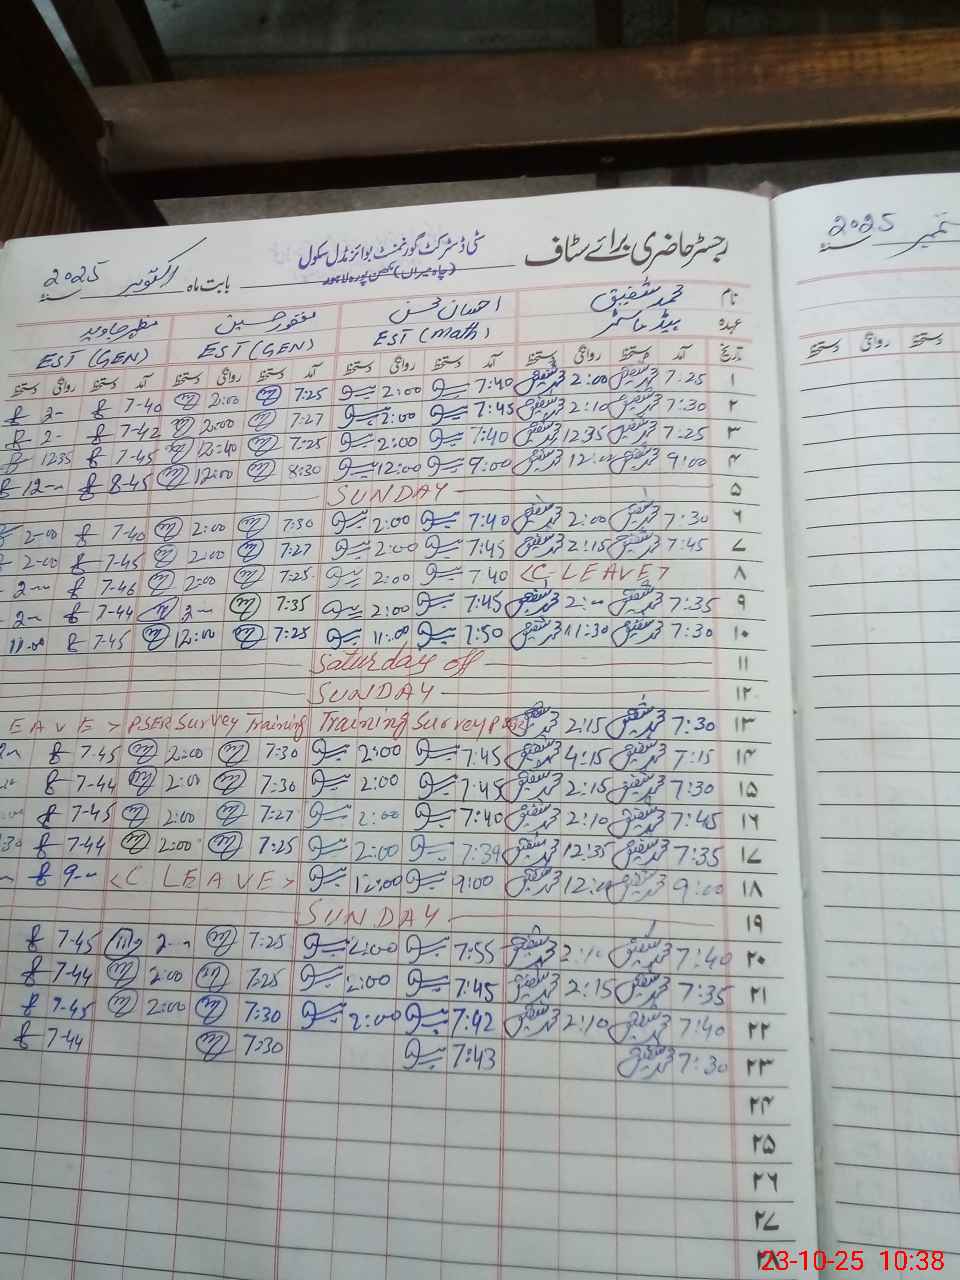 رجسٹر حاضری برائے سٹاف سٹی ڈسٹرکٹ گورنمنٹ بوائز مڈل سکول
(چاہ میراں) لاہور
بابت ماہ اکتوبر سنہ 2025
ستمبر سنہ 2025
نام محمد شفیق احسان محسن مظہر جاوید
عہدہ ہیڈ ماسٹر EST (math) EST (GEN) EST (GEN)
تاریخ آمد دستخط روانگی دستخط آمد دستخط روانگی دستخط آمد دستخط روانگی دستخط آمد دستخط روانگی دستخط
دستخط روانگی دستخط
۱ 7:25 محمد شفیق 2:00 محمد شفیق 7:40 2:00 7:25 2:00 7-40 2-
۲ 7:30 محمد شفیق 2:10 محمد شفیق 7:45 2:00 7:27 2:00 7-42 2-
۳ 7:25 محمد شفیق 12:35 محمد شفیق 7:40 2:00 7:25 12:40 7-45 1235
۴ 9:00 محمد شفیق 12:00 محمد شفیق 9:00 12:00 8:30 12:00 8-45 12-
۵ SUNDAY
۶ 7:30 محمد شفیق 2:00 محمد شفیق 7:40 2:00 7:30 2:00 7-40 2-00
۷ 7:45 محمد شفیق 2:15 محمد شفیق 7:45 2:00 7:27 2:00 7-45 2-00
۸ <C-LEAVE> 7:40 2:00 7:25 2:00 7-46 2-
۹ 7:35 محمد شفیق 2:00 محمد شفیق 7:45 2:00 7:35 2- 7-44 2-
۱۰ 7:30 محمد شفیق 11:30 محمد شفیق 7:50 11:00 7:25 12:00 7-45 11-00
۱۱ Saturday off
۱۲ SUNDAY
۱۳ 7:30 محمد شفیق 2:15 محمد شفیق Training Survey PSER PSER Survey Training EAVE>
۱۴ 7:15 محمد شفیق 4:15 محمد شفیق 7:45 2:00 7:30 2:00 7-45
۱۵ 7:30 محمد شفیق 2:15 محمد شفیق 7:45 2:00 7:30 2:00 7-44
۱۶ 7:45 محمد شفیق 2:10 محمد شفیق 7:40 2:00 7:27 2:00 7-45
۱۷ 7:35 محمد شفیق 12:35 محمد شفیق 7:39 2:00 7:25 2:00 7-44
۱۸ 9:00 محمد شفیق 12:00 محمد شفیق 9:00 12:00 <C LEAVE> 9-
۱۹ SUNDAY
۲۰ 7:40 محمد شفیق 2:10 محمد شفیق 7:55 2:00 7:25 2- 7-45
۲۱ 7:35 محمد شفیق 2:15 محمد شفیق 7:45 2:00 7:25 2:00 7-44
۲۲ 7:40 محمد شفیق 2:10 محمد شفیق 7:42 2:00 7:30 2:00 7-45
۲۳ 7:30 محمد شفیق 7:43 7:30 7-44
۲۴
۲۵
۲۶
۲۷
۲۸
23-10-25 10:38